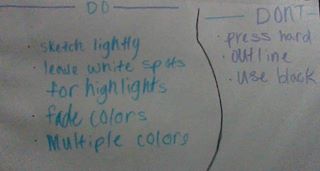 DO
· sketch lightly
· leave white spots
for highlights
· fade colors
· Multiple colors
DONT
· press hard
· outline
· Use black